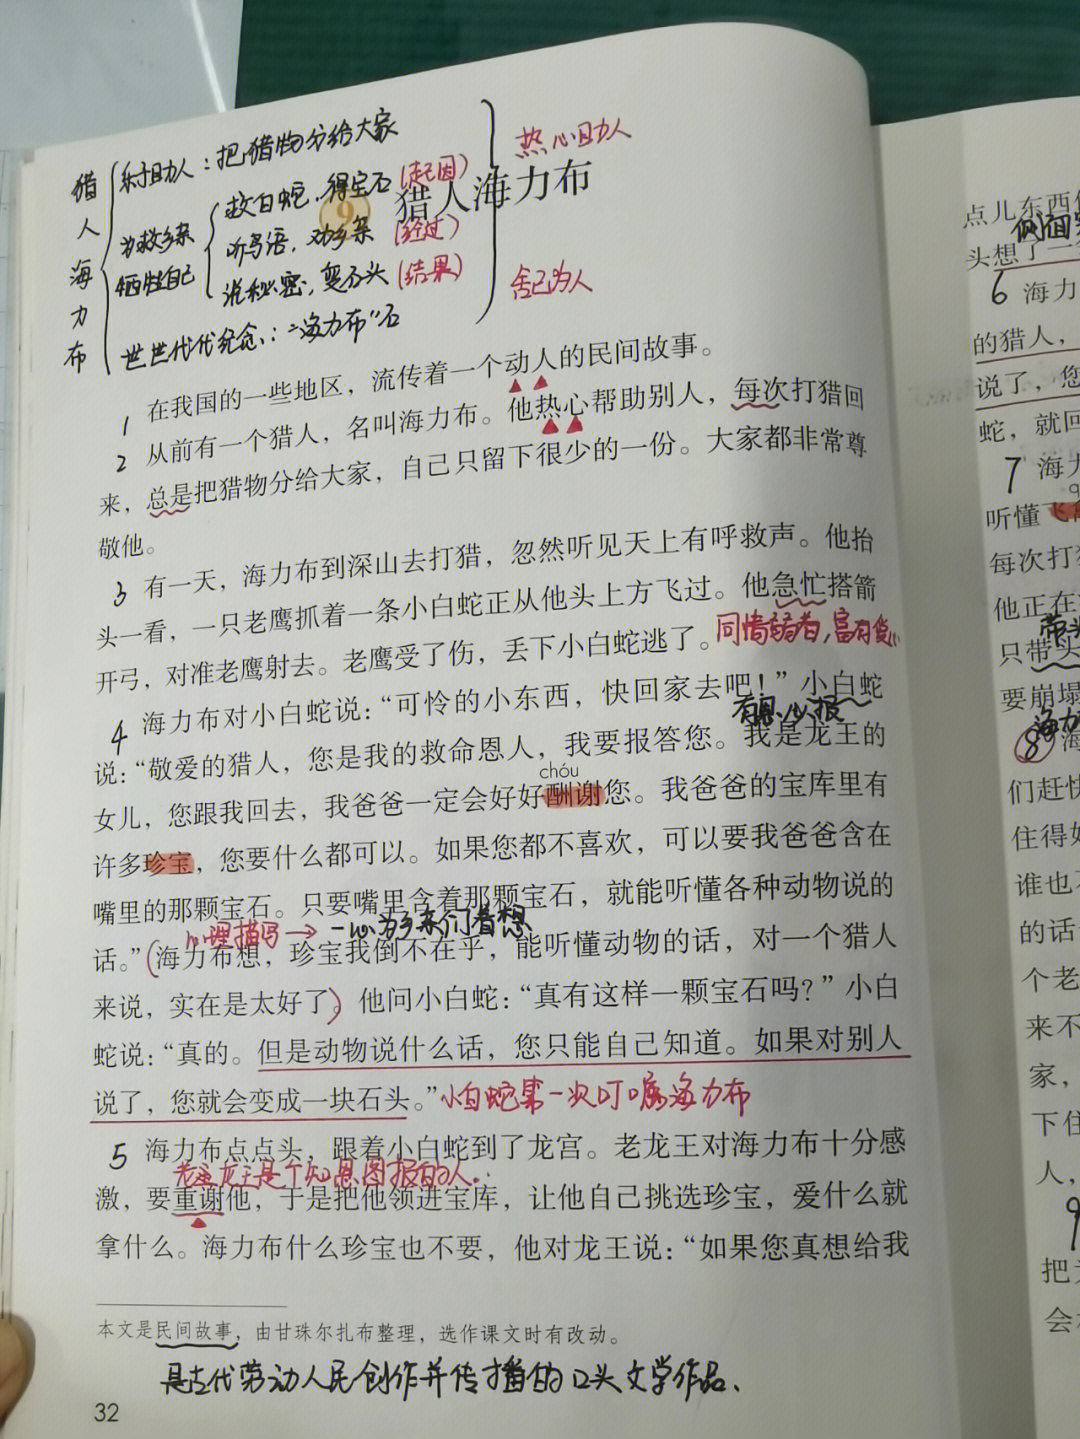 猎人海力布
乐于助人：把猎物分给大家
热心助人
为救乡亲牺牲自己
救白蛇，得宝石（起因）
听鸟语，劝乡亲（经过）
说秘密，变石头（结果）
舍己为人
世世代代纪念：“海力布”石
9 猎人海力布
1 在我国的一些地区，流传着一个动人的民间故事。
2 从前有一个猎人，名叫海力布。他热心帮助别人，每次打猎回
来，总是把猎物分给大家，自己只留下很少的一份。大家都非常尊
敬他。
3 有一天，海力布到深山去打猎，忽然听见天上有呼救声。他抬
头一看，一只老鹰抓着一条小白蛇正从他头上方飞过。他急忙搭箭
开弓，对准老鹰射去。老鹰受了伤，丢下小白蛇逃了。
同情弱者，富有爱心
4 海力布对小白蛇说：“可怜的小东西，快回家去吧！”小白蛇
有恩必报
说：“敬爱的猎人，您是我的救命恩人，我要报答您。我是龙王的
chóu
女儿，您跟我回去，我爸爸一定会好好酬谢您。我爸爸的宝库里有
许多珍宝，您要什么都可以。如果您都不喜欢，可以要我爸爸含在
嘴里的那颗宝石。只要嘴里含着那颗宝石，就能听懂各种动物说的
心理描写→一心为乡亲们着想
话。”（海力布想，珍宝我倒不在乎，能听懂动物的话，对一个猎人
来说，实在是太好了）他问小白蛇：“真有这样一颗宝石吗？”小白
蛇说：“真的。但是动物说什么话，您只能自己知道。如果对别人
说了，您就会变成一块石头。”小白蛇第一次叮嘱海力布
5 海力布点点头，跟着小白蛇到了龙宫。老龙王对海力布十分感
龙王是个知恩图报的人.
激，要重谢他，于是把他领进宝库，让他自己挑选珍宝，爱什么就
拿什么。海力布什么珍宝也不要，他对龙王说：“如果您真想给我
本文是民间故事，由甘珠尔扎布整理，选作课文时有改动。
是古代劳动人民创作并传播的口头文学作品、
32
点儿东西
侧面
头想了一
6 海力
的猎人，
说了，您
蛇，就回
7 海力
听懂飞
每次打
他正在
带头
只带头
要崩塌
海力
8 海
们赶快
住得好
谁也
的话
个老
来不
家，
下住
人，
9
把
会